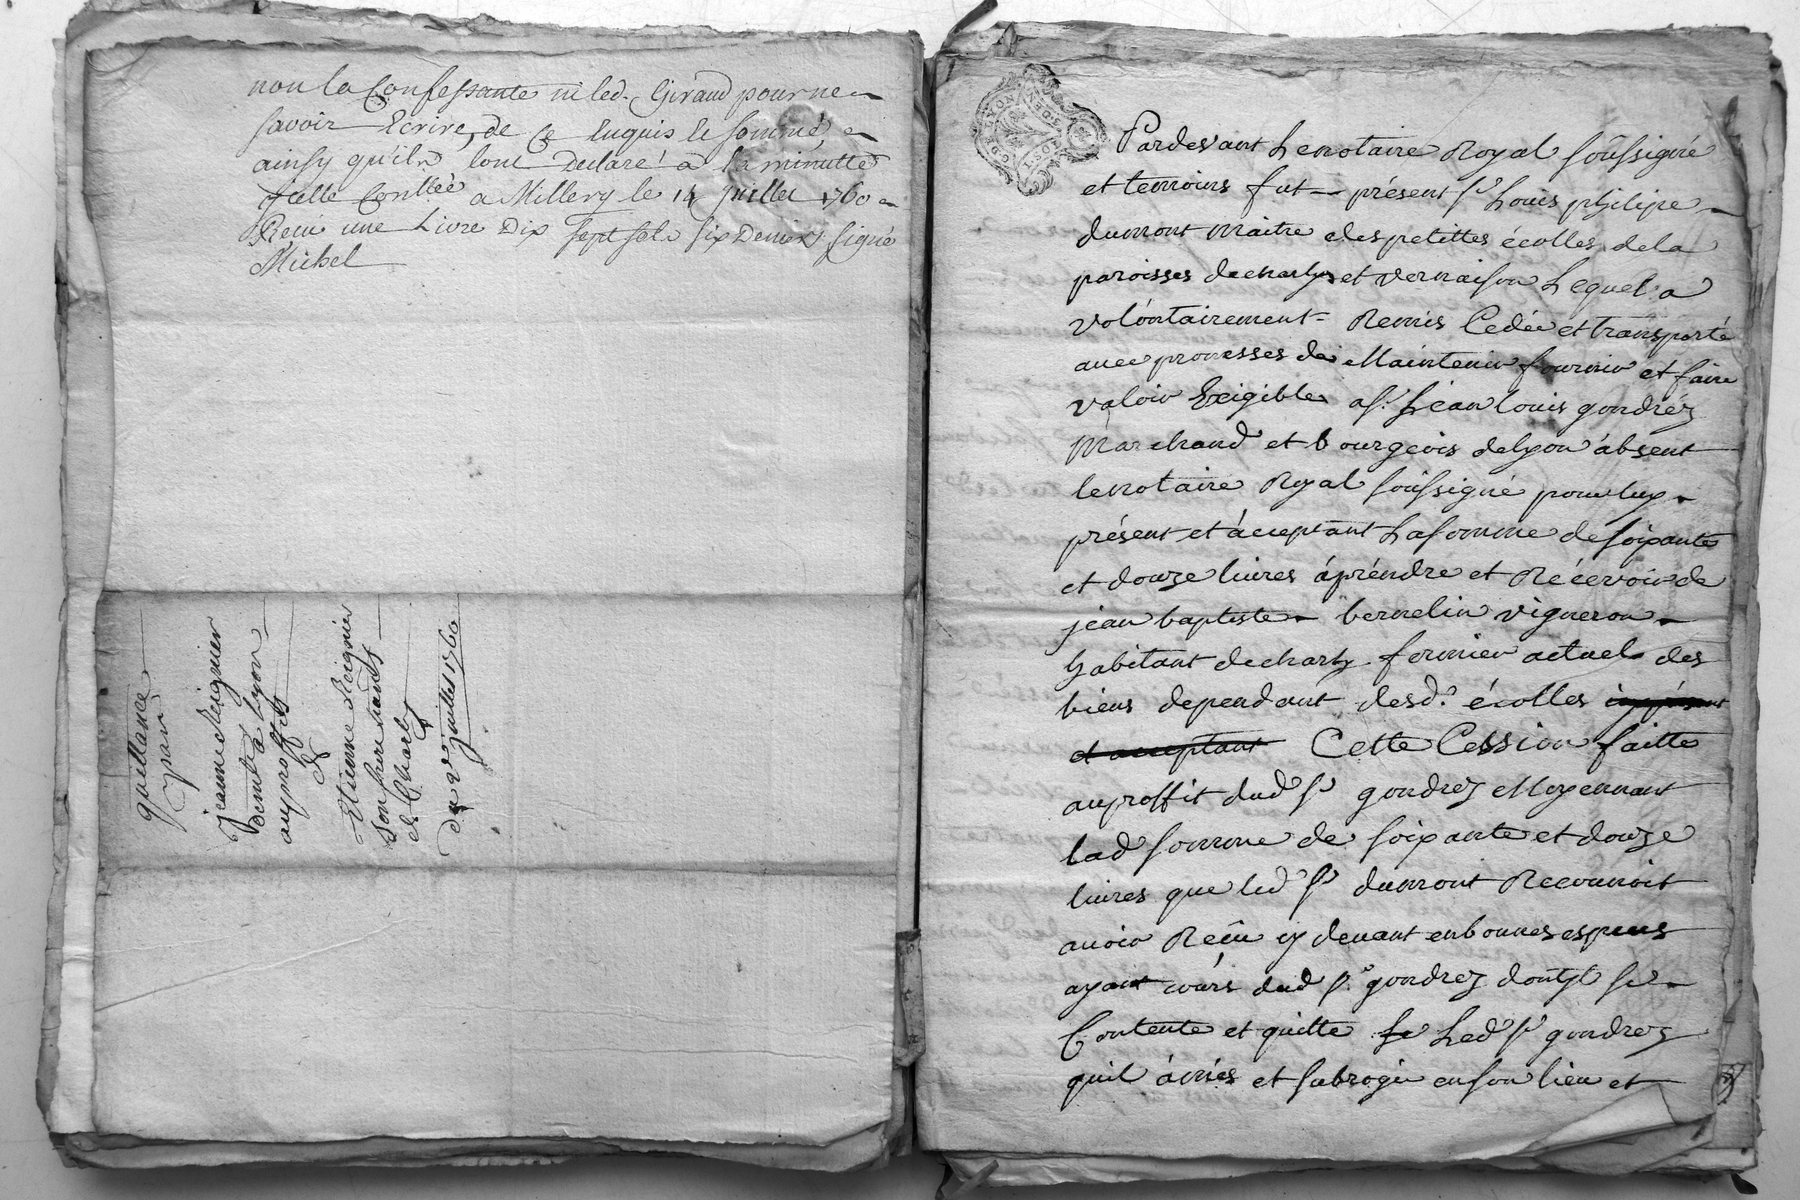 non la Confessante ni led. Giraud pour ne
savoir Ecrire, de ce Enquis le sommé
ainsy qu'ils l'ont Declaré à la minutte
Controllée a Millery le 14 Juillet 1760
Receu une Livre Dix Sept sols six Deniers signé
Michel
quittance
par
jeanne Reignier
demte a lyon
au proffit
d'
Etienne Reignier
son frere
de Charly
du juillet 1760
GEN DE LYON
Pardevant Lenotaire Royal soussigné
et temoins fut présent sr Louis philipe
dumont maitre des petittes écolles de la
paroisses de charly et vernaison Lequel a
volontairement Remis Cedée et transporté
avec promesses de Maintenir fournir et faire
valoir Exigibles a sr. Jean Louis gondrez
Marchand et bourgeois de lyon absent
le notaire Royal soussigné pour luy
présent et acceptant La somme de soixante
et douze livres a préndre et Récevoir de
jean baptiste bernelin vigneron
habitant de charly fermier actuel des
biens dependant desd. écolles
et acceptant Cette Cession faitte
au proffit dud sr gondrez Moyennant
lad somme de soixante et douze
livres que led sr dumont Reconnoit
avoir Reçu cy devant en bonnes especes
ayant cours dud sr. gondrez dont il se
Contente et quitte Led sr gondrez
quil à mis et subrogé en son lieu et